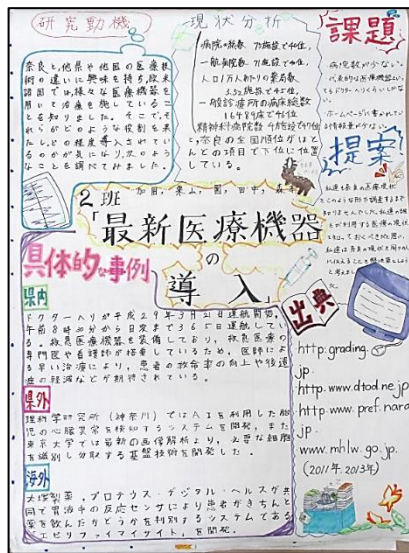 研究動機
奈良と、他県や他国の医療技
術の違いに興味を持ち、欧米
諸国では、様々な医療機器を
用いて治療を施しているこ
とを知りました。そこで、そ
れらがどのような役割を果
たしどの程度導入されてい
るのかが気になり、次のよう
なことを調べてみました。
現状分析
病院の総数 75施設で40位、
一般病院数 71施設で40位、
人口1万人割りの薬局数
3.52施設で45位、
一般診療所の病床総数
1648床で46位
精神科病院数 4施設で47位
と、奈良の全国順位がほと
んどの項目で下位に位置
している。
課題
病院数が少ない。
代表的な医療機器といっ
てもドクターヘリくらいしかな
い。
ホームページに書かれてい
る情報量が少ない。
提案
2班
「最新医療機器
の
導入」
具体的な事例
県内
ドクターヘリが平成29年3月21日運航開始。
午前8時30分から日没まで365日運航してい
る。救急医療機器を装備しており、救急医療の
専門医や看護師が搭乗しているため、医師によ
る早い治療により、患者の救命率の向上や後遺
症の軽減などが期待されている。
県外
理科学研究所(神奈川)ではAIを利用した胎
児の心臓異常を検知するシステムを開発。また
東京大学では最新の画像解析より、必要な細胞
を識別し分取する基盤技術を開発した。
海外
大塚製薬、プロテウス・デジタル・ヘルスが共
同で胃液中の反応センサにより患者がきちんと
薬を飲んだかどうかを判別するシステムである
エビリファイマイサイトを開発。
出典
http:grading.
jp.
http.www.dtod.ne.jp
http www.pref.nara
jp
www.mhlw.go.jp
(2011年, 2013年)